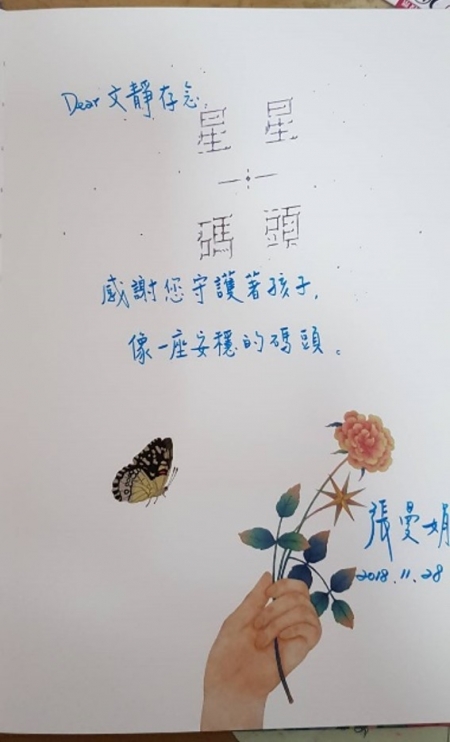 Dear 文靜存念,
星星
碼頭
感謝您守護著孩子,
像一座安穩的碼頭。
張曼娟
2018.11.28